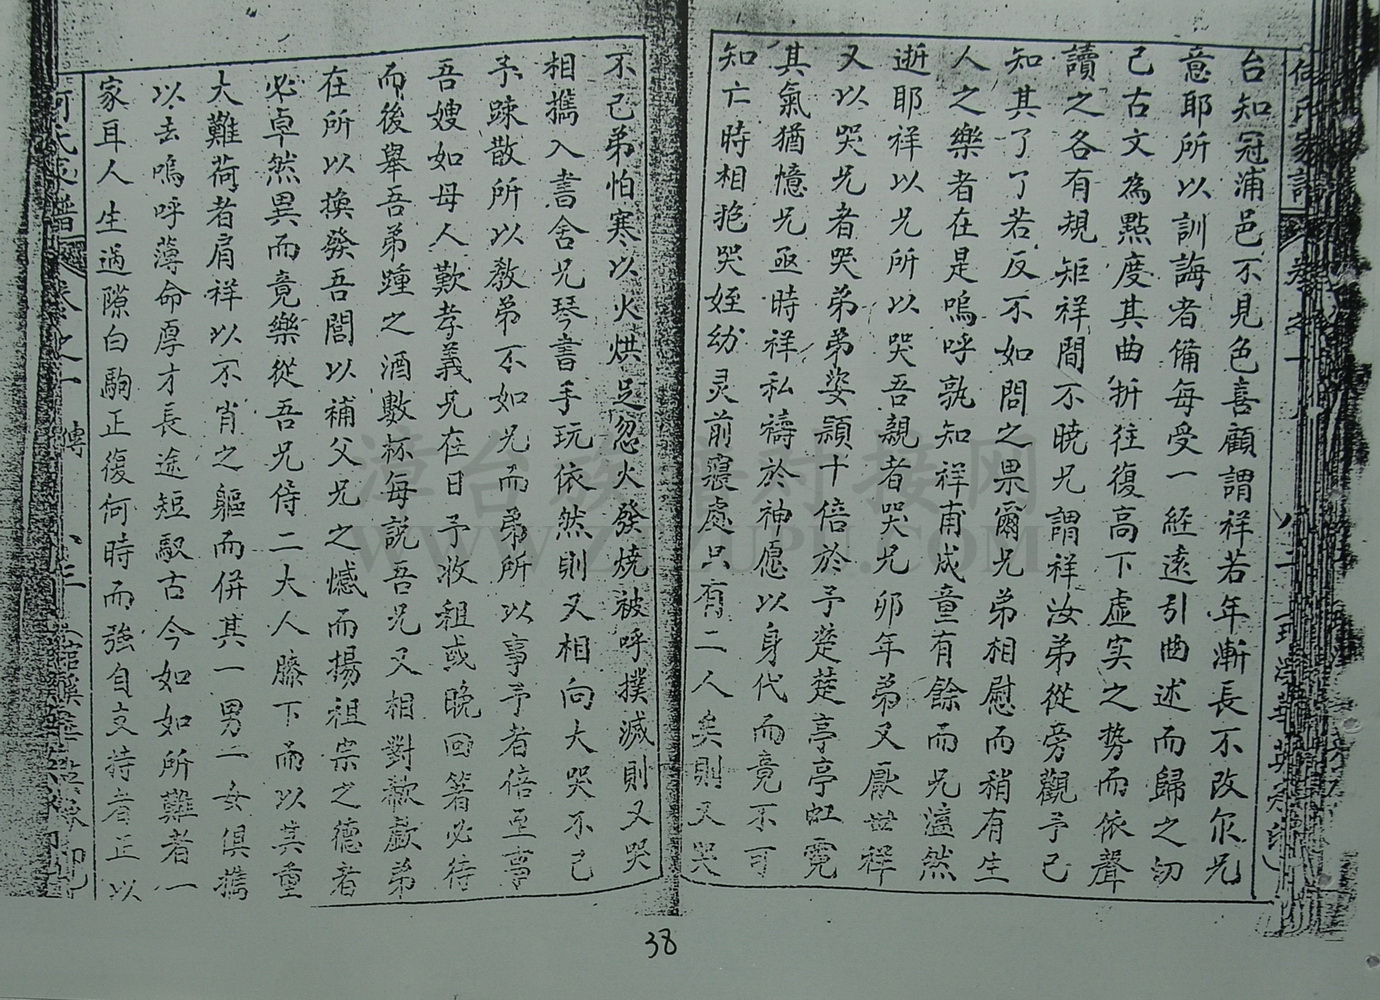 台知冠浦邑不見色喜顧謂祥若年漸長不改尔兄
意耶所以訓誨者備每受一經遠引曲述而歸之切
己古文為點度其曲折往復高下虛实之势而依聲
讀之各有規矩祥間不曉兄謂祥汝弟從旁觀予己
知其了了若反不如問之果爾兄弟相慰而稍有生
人之樂者在是嗚呼孰知祥甫成童有餘而兄溘然
逝耶祥以兄所以哭吾親者哭兄卯年弟又厭世祥
又以哭兄者哭弟弟姿顈十倍於予楚楚亭亭虹霓
其氣猶憶兄亟時祥私禱於神愿以身代而竟不可
知亡時相抱哭姪幼灵前寢處只有二人矣則又哭
不已弟怕寒以火烘足忽火發燒被呼撲滅則又哭
相携入書舍兄琴書手玩依然則又相向大哭不己
予踈散所以教弟不如兄而弟所以事予者倍至事
吾嫂如母人歎孝義兄在日予收租或晚回箸必待
而後舉吾弟踵之酒數杯每說吾兄又相對歔欷弟
在所以換發吾閭以補父兄之憾而揚祖宗之德者
必卓然異而竟樂從吾兄侍二大人膝下而以其重
大難荷者肩祥以不肖之軀而併其一男一女俱携
以去嗚呼薄命厚才長途短馭古今如如所難者一
家耳人生過隙白駒正復何時而強自支持者正以
何氏家譜 卷之一 傳
38
漳台族譜对接网